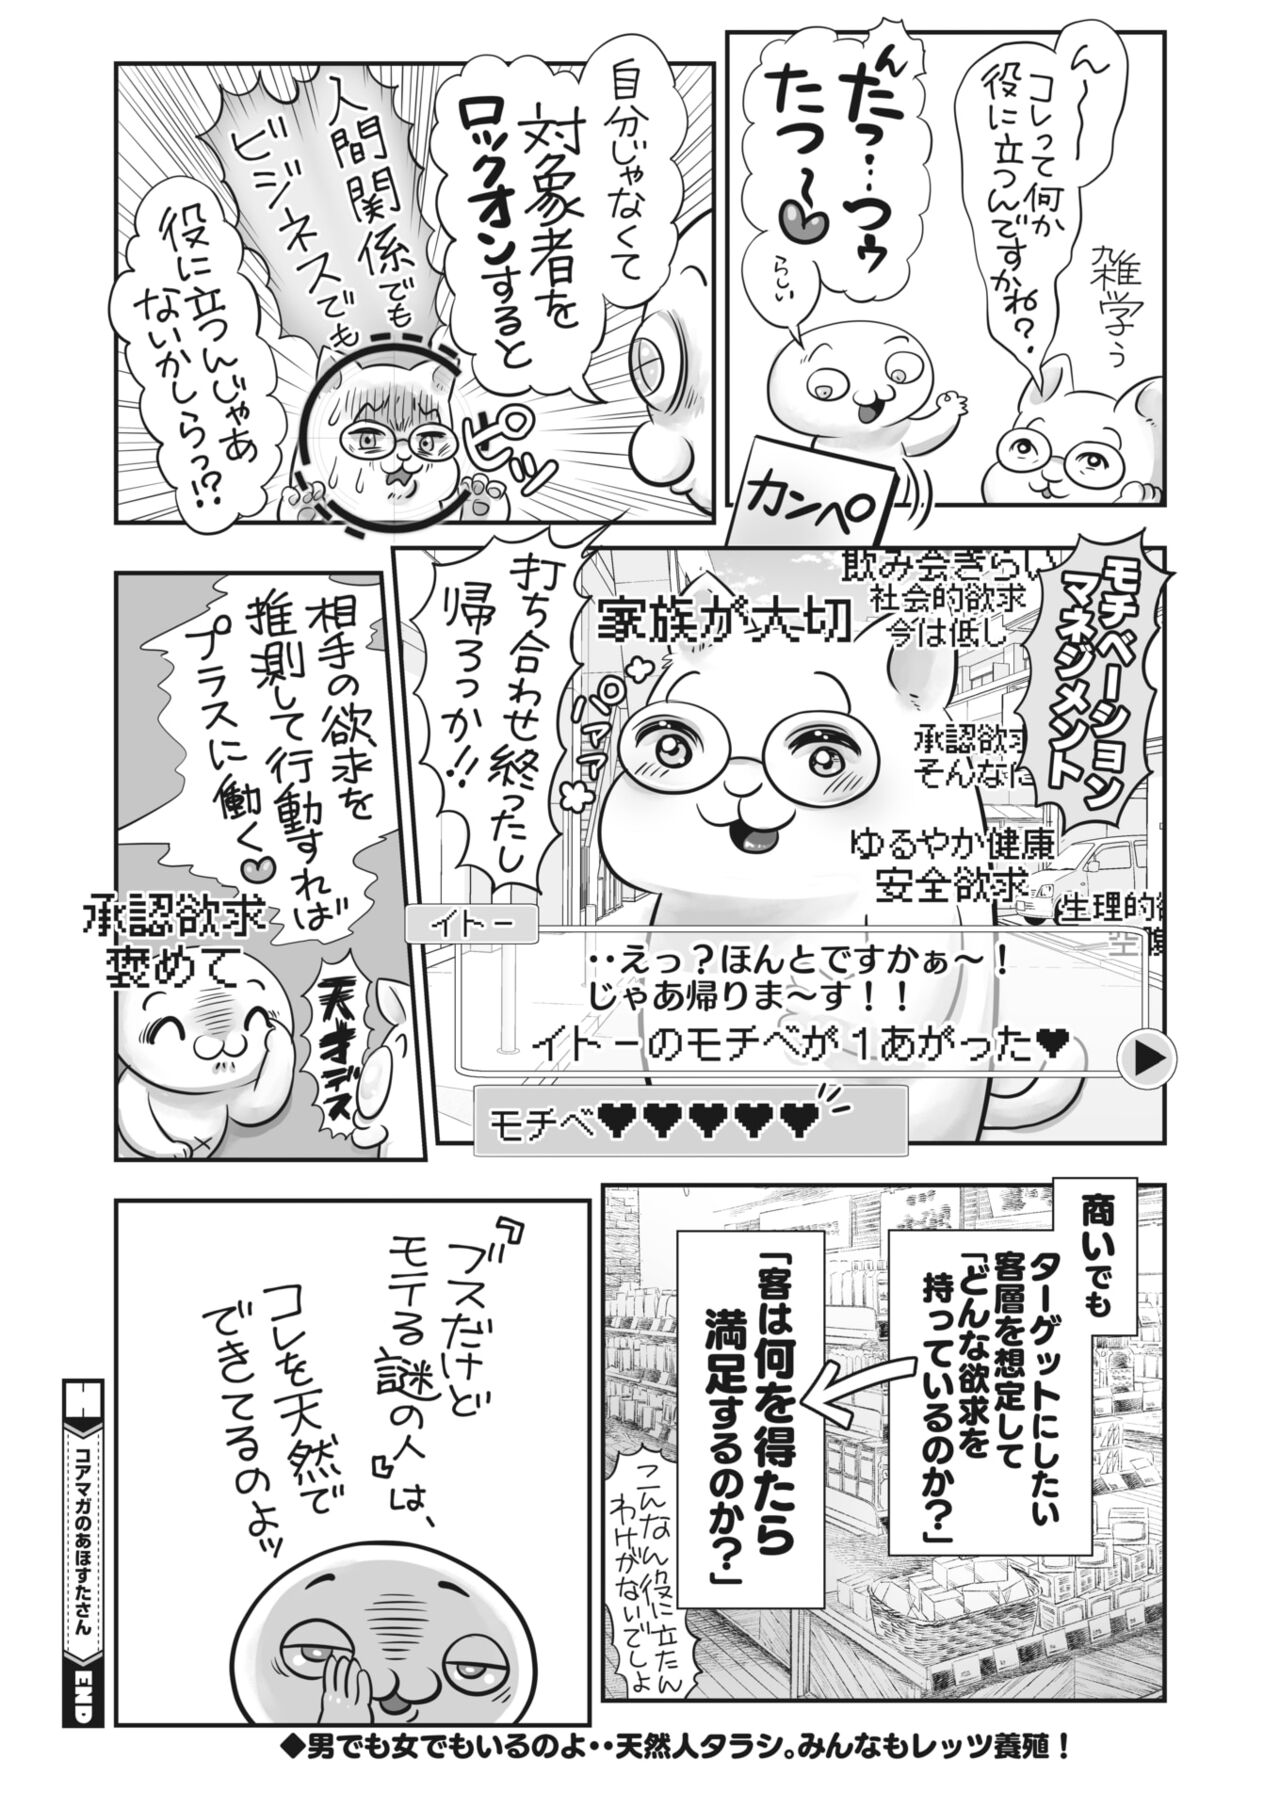 ん〜〜
コレって何か
役に立つんですかね？
雑学ぅ
んたっ…つゥ
たつ〜♥
らしい
カンペ
自分じゃなくて
対象者を
ロックオンすると
人間関係でも
ビジネスでも
役に立つんじゃあ
ないかしらっ!?
ピピッ
モチベーション
マネジメント
飲み会ぎらい
社会的欲求
今は低し
家族が大切
承認欲求
そんなに
ゆるやか健康
安全欲求
生理的欲
パアァァ
打ち合わせ終ったし
帰ろっか!!
イトー
‥えっ？ほんとですかぁ〜！
じゃあ帰りま〜す！！
イトーのモチベが１あがった♥
モチベ♥♥♥♥♥
相手の欲求を
推測して行動すれば
プラスに働く♥
承認欲求
褒めて
天才デス
商いでも
ターゲットにしたい
客層を想定して
「どんな欲求を
持っているのか？」
「客は何を得たら
満足するのか？」
こんなん役に立たん
わけがないでしょ
『ブスだけど
モテる謎の人』は、
コレを天然で
できてるのよッ
コアマガのあほすたさん
END
◆男でも女でもいるのよ‥天然人タラシ。みんなもレッツ養殖！